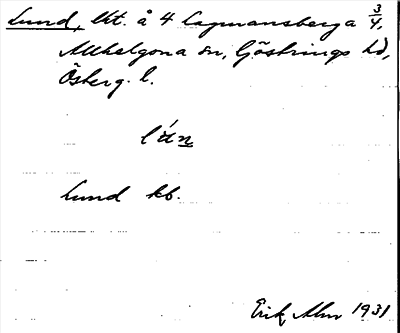 Lund, lht. å 4 Lagmansberga 3/4,
Allhelgona sn, Göstrings hd,
Österg. l.
lún
Lund kb.
Erik Alm 1931